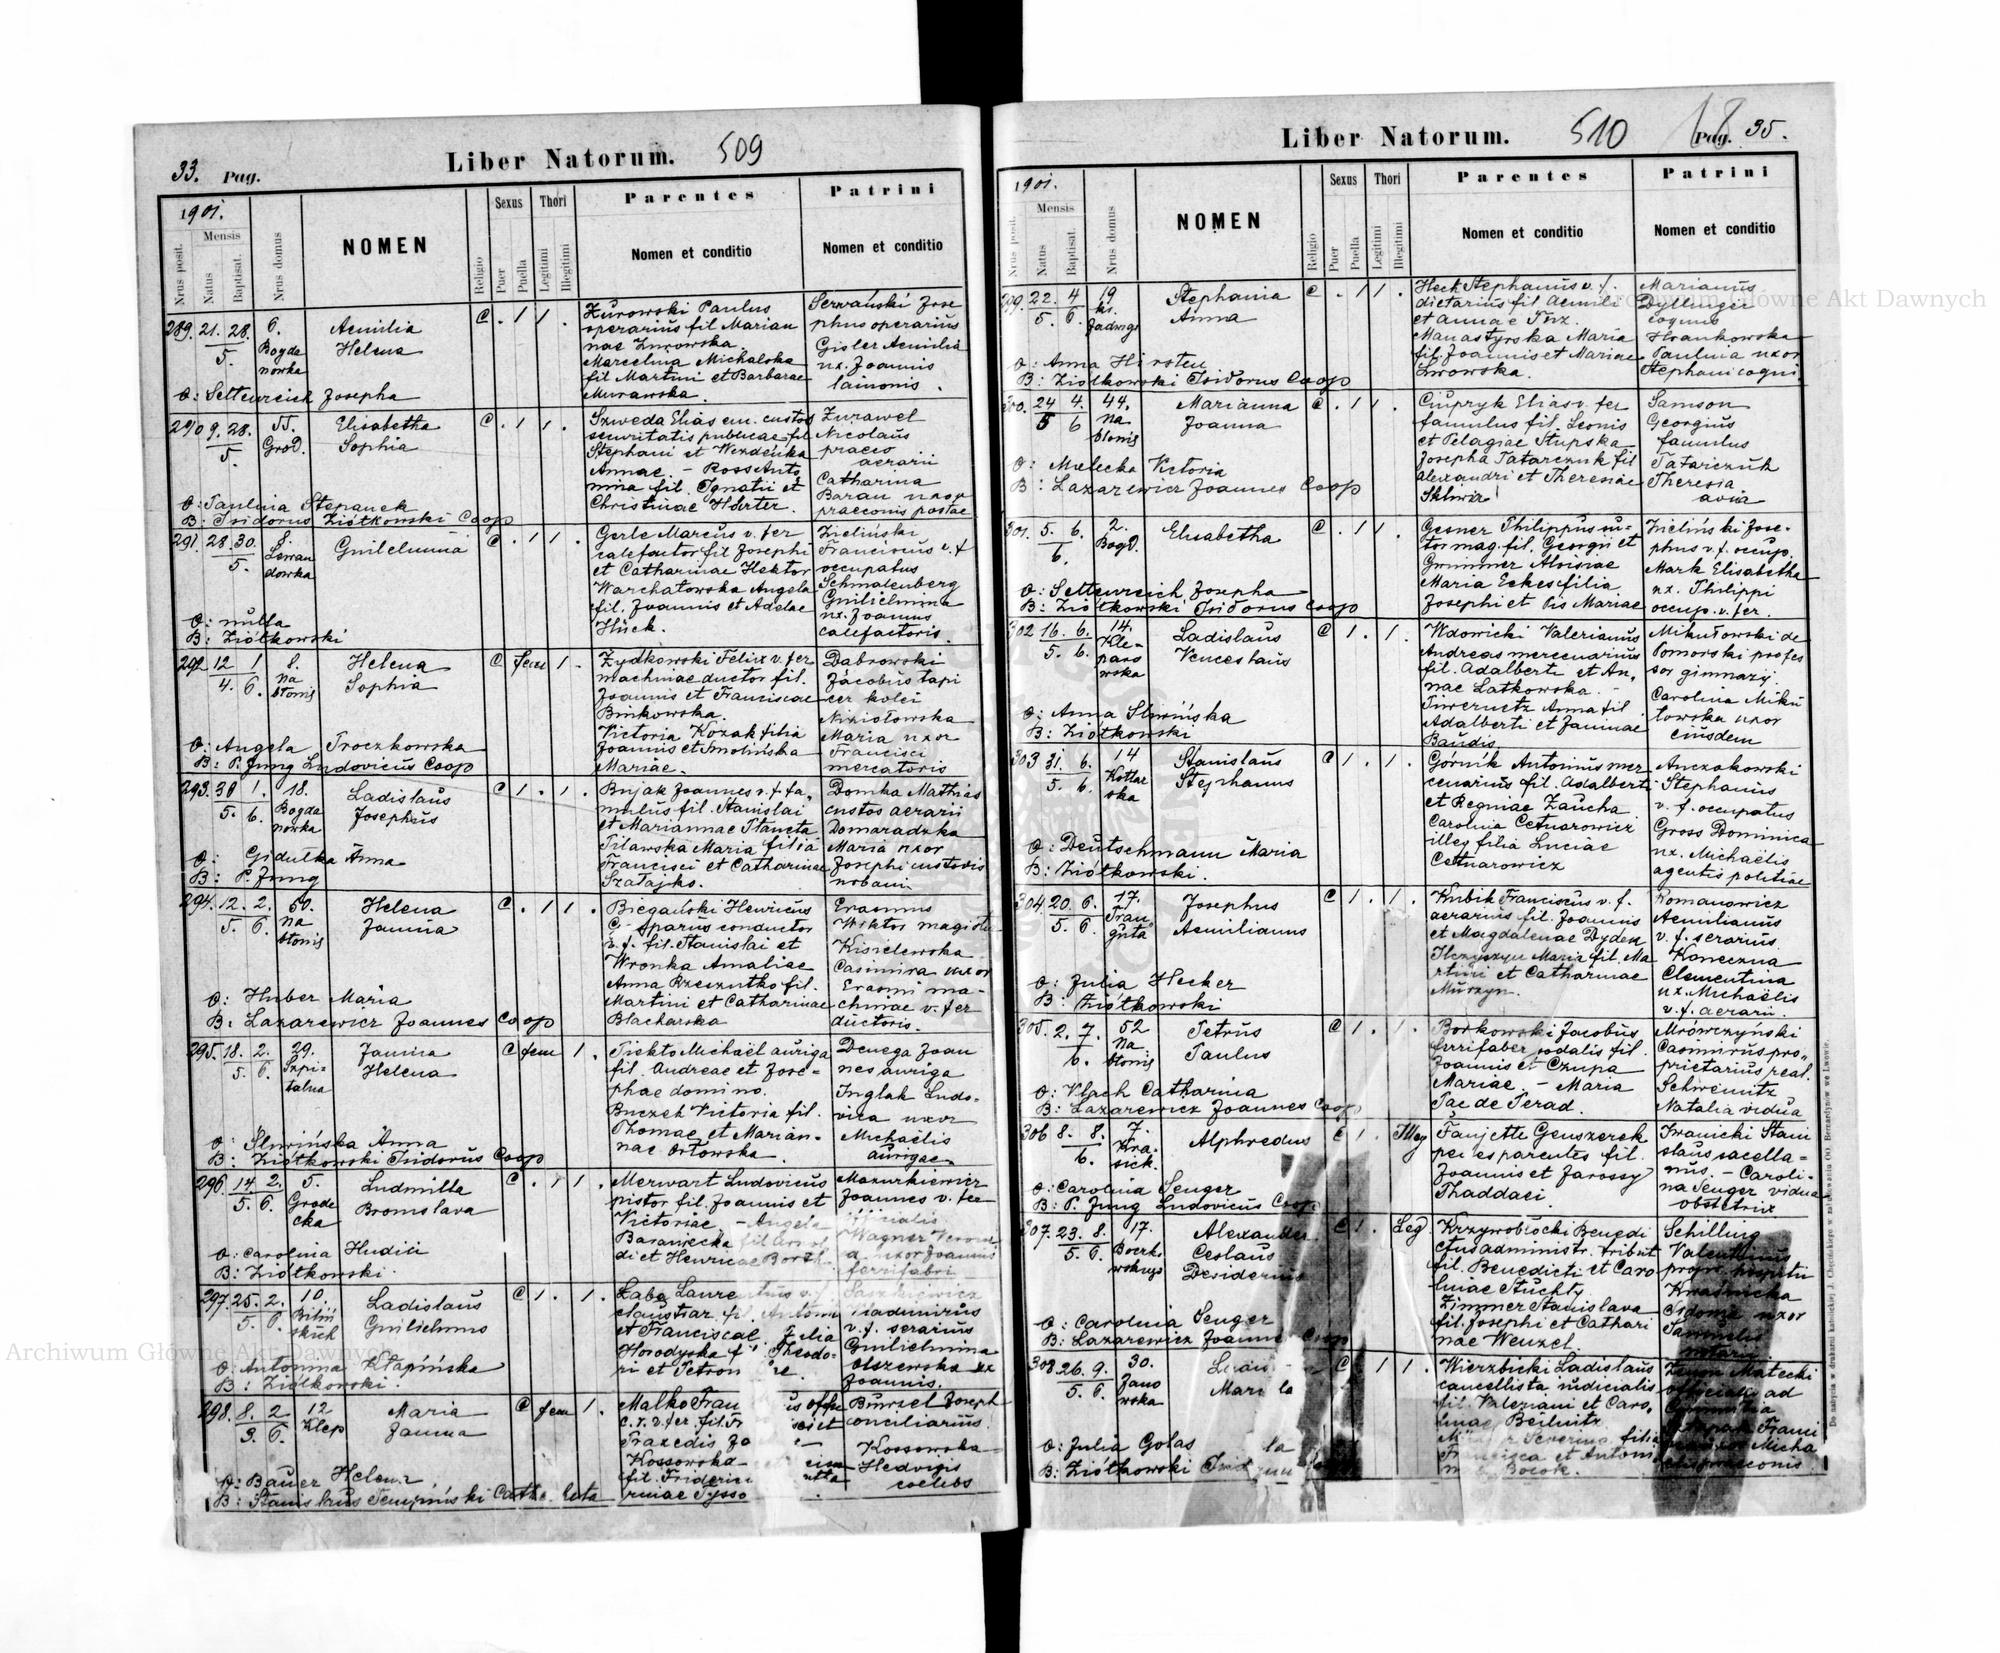 33. Pag.
Liber Natorum. 509
1901.
Nrus posit.
Mensis
Natus
Baptisat.
Nrus domus
NOMEN
Religio
Sexus
Puer
Puella
Thori
Legitimi
Illegitimi
Parentes
Nomen et conditio
Patrini
Nomen et conditio
289. 21. 28. 5.
6. Bogda
nówka
Aemilia
Helena
C . 1 1 .
Żurowski Paulus
operarius fil Marian
nae Lwowska.
Marcelina Michalska
fil Martini et Barbarae
Murawska.
Serwański Jose
phus operarius
Gisler Aemilia
ux. Joannis
lainonis.
O: Settenreich Josepha
290 9. 28. 5.
55.
Grod.
Elisabetha
Sophia
C . 1 1 .
Szweda Elias em. custos
securitatis publicae fil
Stephani et
Annae. – Ross Anto
nina fil. Ignatii et
Christinae Herter.
Żurawel
Nicolaus
praeco
aerarii
Catharina
Baran uxor
praeconis postae
O: Paulina Stepanek
B: Isidorus Ziółkowski Coop
291. 28. 30. 5.
8.
Lewan
dowka
Guilelmina
C . 1 1 .
Gerle Marcus v. fer
calefactor fil Josephi
et Catharinae Hektor
Warchatowska Angela
fil. Joannis et Adelae
Hück.
Zieliński
Franciscus v. f
occupatus
Schmalenberg
Guilielmina
ux. Joannis
calefactoris.
O: nulla
B: Ziółkowski
292 12 1
4. 6.
8.
na
błonie
Helena
Sophia
C fem 1 .
Żydkowski Felix v. fer
machinae ductor fil.
Joannis et Franciscae
Binkowska.
Victoria Kozak filia
Joannis et Smolińska
Mariae.
Dąbrowski
Jacobus tapi
cer kolei
Niziołowska
Maria uxor
Francisci
mercatoris
O: Angela Troczkowska
B: P. Jung Ludovicus Coop
293. 30 1.
5. 6.
18.
Bogda
nówka
Ladislaus
Josephus
C 1 . 1 .
Bujak Joannes v. f fa,
mulus fil. Stanislai
et Mariannae Płaneta
Pilawska Maria filia
Francisci et Catharinae
Szałajko.
Domka Mathias
custos aerarii
Domaradzka
Maria uxor
Josephi custodis
urbani
O: Gidulka Anna
B: P. Jung
294. 12. 2.
5. 6.
60.
na
błonie
Helena
Janina
C . 1 1 .
Biegański Henricus
conductor
v. f. fil. Stanislai et
Wronka Amaliae
Anna Rzeszutko fil.
Martini et Catharinae
Blacharska
Erasmus
Wiktor
Kisielewska
Casimira uxor
Erasmi ma-
chinae v. fer
ductoris.
O: Huber Maria
B: Lazarewicz Joannes Coop
295. 18. 2.
5. 6.
29.
Szpi-
talna
Janina
Helena
C fem 1 .
Piekto Michaël auriga
fil. Andreae et Jose-
phae domino.
Buczek Victoria fil.
Thomae et Marian-
nae Ortowska.
Denega Joan
nes auriga
Inglak Ludo-
vica uxor
Michaëlis
aurigae
O: Śliwińska Anna
B: Ziółkowski Isidorus Coop
296. 14 2.
5. 6.
5.
Grode
cka
Ludmilla
Bronislava
C . 1 1 .
Merwart Ludovicus
pistor fil. Joannis et
Victoriae. – Angela
Baraniecka fil
di et Henricae
Mazurkiewicz
Joannes v. fer
officialis
Wagner
a uxor Joannis
ferrifabri
O: Carolina Hudici
B: Ziółkowski.
297. 25. 2.
5. 6.
10.
Biliń
skich
Ladislaus
Guilielmus
C 1 . 1 .
Laba
claustrar. fil. Antonii
et Franciscae Julia
Horodyska Theodo-
ri et
Saszkiewicz
Vladimirus
v. f. serarius
Guilielmina
Olszewska ux
Joannis.
O: Antonina Kłapińska
B: Ziółkowski.
298. 8. 2
3. 6.
12
Klep
Maria
Janina
C fem 1 .
Malko
c. r. v. fer. fil.
Praxedis
Kossowska
fil. Friderici
Bursel Joseph
conciliarius.
Kossowska
Hedvigis
coelebs
O: Bauer Helena
B: Stanislaus
Liber Natorum. 510
Pag. 35.
1901.
Nrus posit.
Mensis
Natus
Baptisat.
Nrus domus
NOMEN
Religio
Sexus
Puer
Puella
Thori
Legitimi
Illegitimi
Parentes
Nomen et conditio
Patrini
Nomen et conditio
299. 22. 4
5. 6.
19
kr.
Jadwigi
Stephania
Anna
C . 1 1 .
Heck Stephanus v. f.
dietarius fil Aemili
et Annae
Manastyrska Maria
fil. Joannis et Mariae
Lwowska.
Marianus
Dyllinger
coquus
Hrankowska
Paulina uxor
Stephani cogni.
O: Anna Hirsten
B: Ziółkowski Isidorus Coop
300. 24 4.
5 6
44.
na
błonie
Marianna
Joanna
C . 1 1 .
Ciupryk Elias v. fer
famulus fil. Leonis
et Pelagiae Stupska
Josepha Tatarczuk fil
Alexandri et Theresiae
Samson
Georgius
famulus
Tatarczuk
Theresia
avia
O: Małecka Victoria
B: Lazarewicz Joannes Coop
301. 5. 6.
6.
2.
Bogd.
Elisabetha
C . 1 1 .
Gesner Philippus su-
tor mag. fil. Georgii et
Grummer Aloisiae
Maria Eckes filia
Josephi et Cis Mariae
Zieliński Jose-
phus v. f. occup.
Mark Elisabetha
ux. Philippi
occup. v. fer.
O: Settenreich Josepha
B: Ziółkowski Isidorus Coop
302 16. 6.
5. 6.
14.
Kle-
paro
wska
Ladislaus
Venceslaus
C 1. 1 .
Wdowicki Valerianus
Andreas mercenarius
fil. Adalberti et An,
nae Latkowska. –
Piwernetz Anna fil
Adalberti et Janinae
Baudis.
Mikułowski de
Pomorski profes
sor gimnazij.
Carolina Miku
łowska uxor
eiusdem
O: Anna Śliwińska
B: Ziółkowski
303 31. 6.
5. 6.
14
Kotlar
ska
Stanislaus
Stephanus
C 1 . 1 .
Górnik Antonius mer
cenarius fil. Adalberti
et Reginae Zaucha
Carolina Cetnarowicz
illeg filia Luciae
Cetnarowicz
Anczakowski
Stephanus
v. f. occupatus
Gross Dominica
ux. Michaëlis
agentis politiae
O: Deutschmann Maria
B: Ziółkowski.
304. 20. 6.
5. 6.
17.
Frau
guta
Josephus
Aemilianus
C 1 . 1 .
Kubik Franciscus v. f.
aerarius fil. Joannis
et Magdalenae Dydek
Maria fil. Ma
rtini et Catharinae
Murzyn.
Romanowicz
Aemilianus
v. f. serarius
Koneczna
Clementina
ux. Michaëlis
v. f. aerarii
O: Julia Hecker
B: Ziółkowski
305. 2. 7.
6.
52
na
błonie
Petrus
Paulus
C 1 . 1 .
Borkowski Jacobus
ferrifaber sodalis fil.
Joannis et Czupa
Mariae. – Maria
Pac de Perad.
Mrówczyński
Casimirus pro„
prietarius real.
Schweinitz
Natalia vidua
O: Vlach Catharina
B: Lazarewicz Joannes Coop
306 8. 8.
6.
7.
Kra-
sick.
Alphredus
C 1 . Illeg
Joannis et Jarossy
Thaddaei.
Iwanicki Stani
slaus sacella=
nus. – Caroli-
na Senger vidua
obstetrix
O: Carolina Senger
B: P. Jung Ludovicus Coop.
307. 23. 8.
5. 6.
17.
Alexander
Ceslaus
Desiderius
C 1. Leg.
Krzyrobłocki Benedi
ctus administr. tribut
fil. Benedicti et Caro
linae Stuchly
Zimmer Stanislava
fil. Josephi et Cathari
nae Wenzel.
Schilling
Valentinus
Kwaśnicka
Sidonia uxor
notarii
O: Carolina Senger
B: Lazarewicz Joannes Coop
308 26. 9.
5. 6.
30.
Jano
wska
C 1 1 .
Wierzbicki Ladislaus
cancellista iudicialis
fil. Valeriani et Caro,
linae Beilnitz
Severina filia
et Antoni
Matecki
officialis ad
O: Julia Golas
B: Ziółkowski
Do nabycia w drukarni katolickiej J. Chęcińskiego w zabudowaniu OO. Bernardynów we Lwowie.
Archiwum Główne Akt Dawnych
Archiwum Główne Akt Dawnych